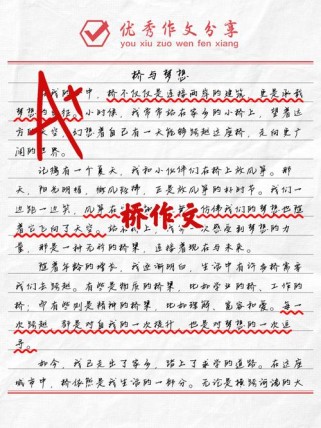 优秀作文分享
you xiu zuo wen fen xiang
桥与梦想
中，桥不仅仅是连接两岸的建筑，更是承载
梦想的。小时候，我常常站在家乡的小桥上，望着远
方的天空，幻想着自己有一天能够跨越这座桥，走向更广
阔的世界。
记得有一个夏天，我和小伙伴们在桥上放风筝。那
天，阳光明媚，微风轻拂，正是放风筝的好时节。我们一
边跑一边笑，风筝在仿佛我们的梦想也随
着它飞向了天空。站在桥上，我第一次感受到梦想的力
量，那是一种无形的桥梁，连接着现在与未来。
桥作文
随着年龄的增长，我逐渐明白，生活中有许多桥需要
我们去跨越。有些是物质的桥梁，比如学业的桥、工作的
桥；而有些则是精神的桥梁，比如理解、宽容和爱。每一
次跨越，都是对自我的一次提升，也是对梦想的一次追
寻。
如今，我已走出了家乡，踏上了求学的道路。在这座
城市中，桥依然是我生活的一部分。无论是横跨河流的大
A+